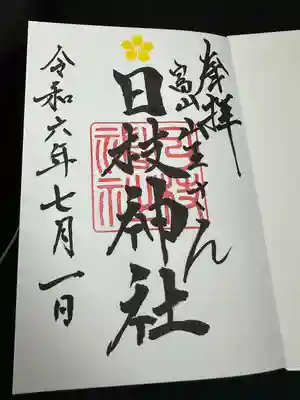 奉拝
富山山王さん
日枝神社
日枝
神社
令和六年七月一日